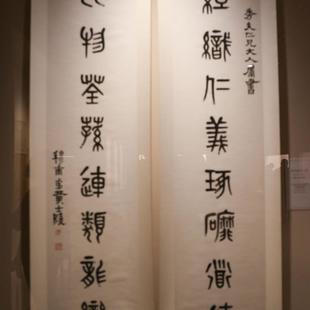 秀夫仁兄大人屬書
經織仁義琢磨道
物荃蓀連類龍
穆甫弟黃士陵